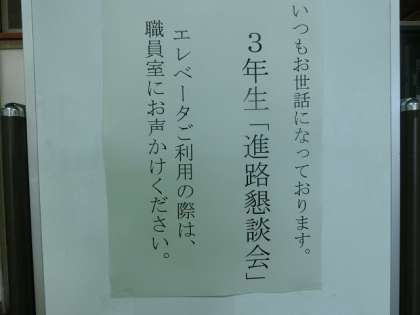 いつもお世話になっております。
３年生「進路懇談会」
エレベータご利用の際は、
職員室にお声かけください。